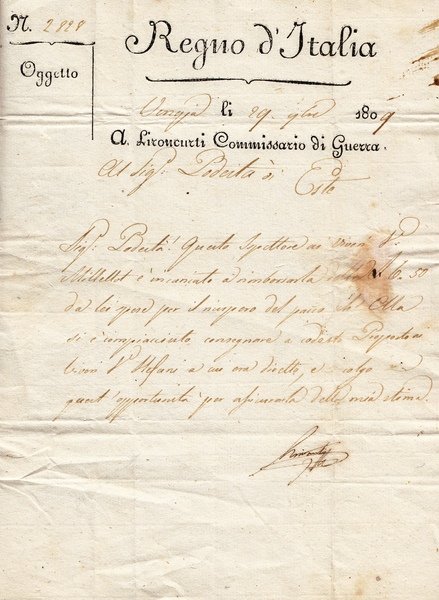 N. 2828
Regno d'Italia
Oggetto
Venezia li 29. 9bre 1809
A. Lironcurti Commissario di Guerra.
Al Sigr. Podestà di
Este
Sigr. Podestà! Questo Ispettore ai Viveri Vo.
è incaricato a rimborsarla delle 16. 50
da lei spese per il ricupero del pacco ch'Ella
si è compiaciuto consegnare a codesto Preposto ai
Viveri Vo. Stefani a cui era diretto, e colgo
quest'opportunità per assicurarla della mia stima.